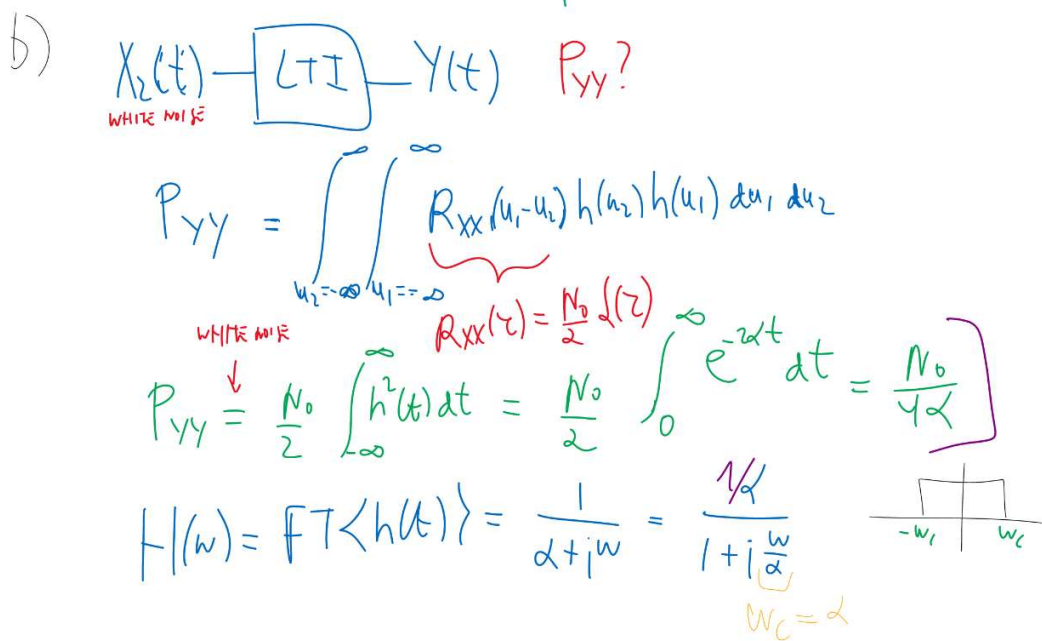 b)
X₂(t) — LTI — Y(t) P_YY?
WHITE NOISE
P_YY = ∫_{u₂=-∞}^{∞} ∫_{u₁=-∞}^{∞} R_XX(u₁-u₂) h(u₂) h(u₁) du₁ du₂
R_XX(τ) = N₀/2 δ(τ)
WHITE NOISE
P_YY = N₀/2 ∫_{-∞}^{∞} h²(t) dt = N₀/2 ∫_0^∞ e^{-2αt} dt = N₀/4α
H(w) = FT<h(t)> = 1/(α+jw) = (1/α)/(1+j w/α)
-w_c w_c
w_c = α